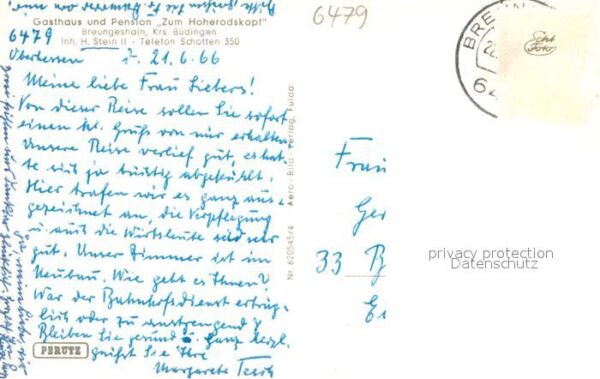 Gasthaus und Pension „Zum Hoherodskopf"
Breungeshain, Krs. Büdingen
Inh. H. Stein II - Telefon Schotten 350
6479
Oberhessen 21.6.66
Meine liebe Frau Siebers!
Von dieser Reise sollen Sie sofort
einen kl. Gruß von mir erhalten.
Unsere Reise verlief gut, es hat-
te sich ja tüchtig abgekühlt.
Hier trafen wir es ganz aus-
gezeichnet an, die Verpflegung
u. auch die Wirtsleute sind sehr
gut. Unser Zimmer ist im
Neubau. Wie geht es Ihnen?
War der Bahnhofsdienst erträg-
lich oder zu anstrengend?
Bleiben Sie gesund u. Ganz herzl.
grüßt Sie Ihre
Margarete
PERUTZ
Aero-Bild-Verlag, Fulda
Nr. 620545/4
6479
BREUN
Echt
Foto
Frau
Ger
33 B
privacy protection
Datenschutz